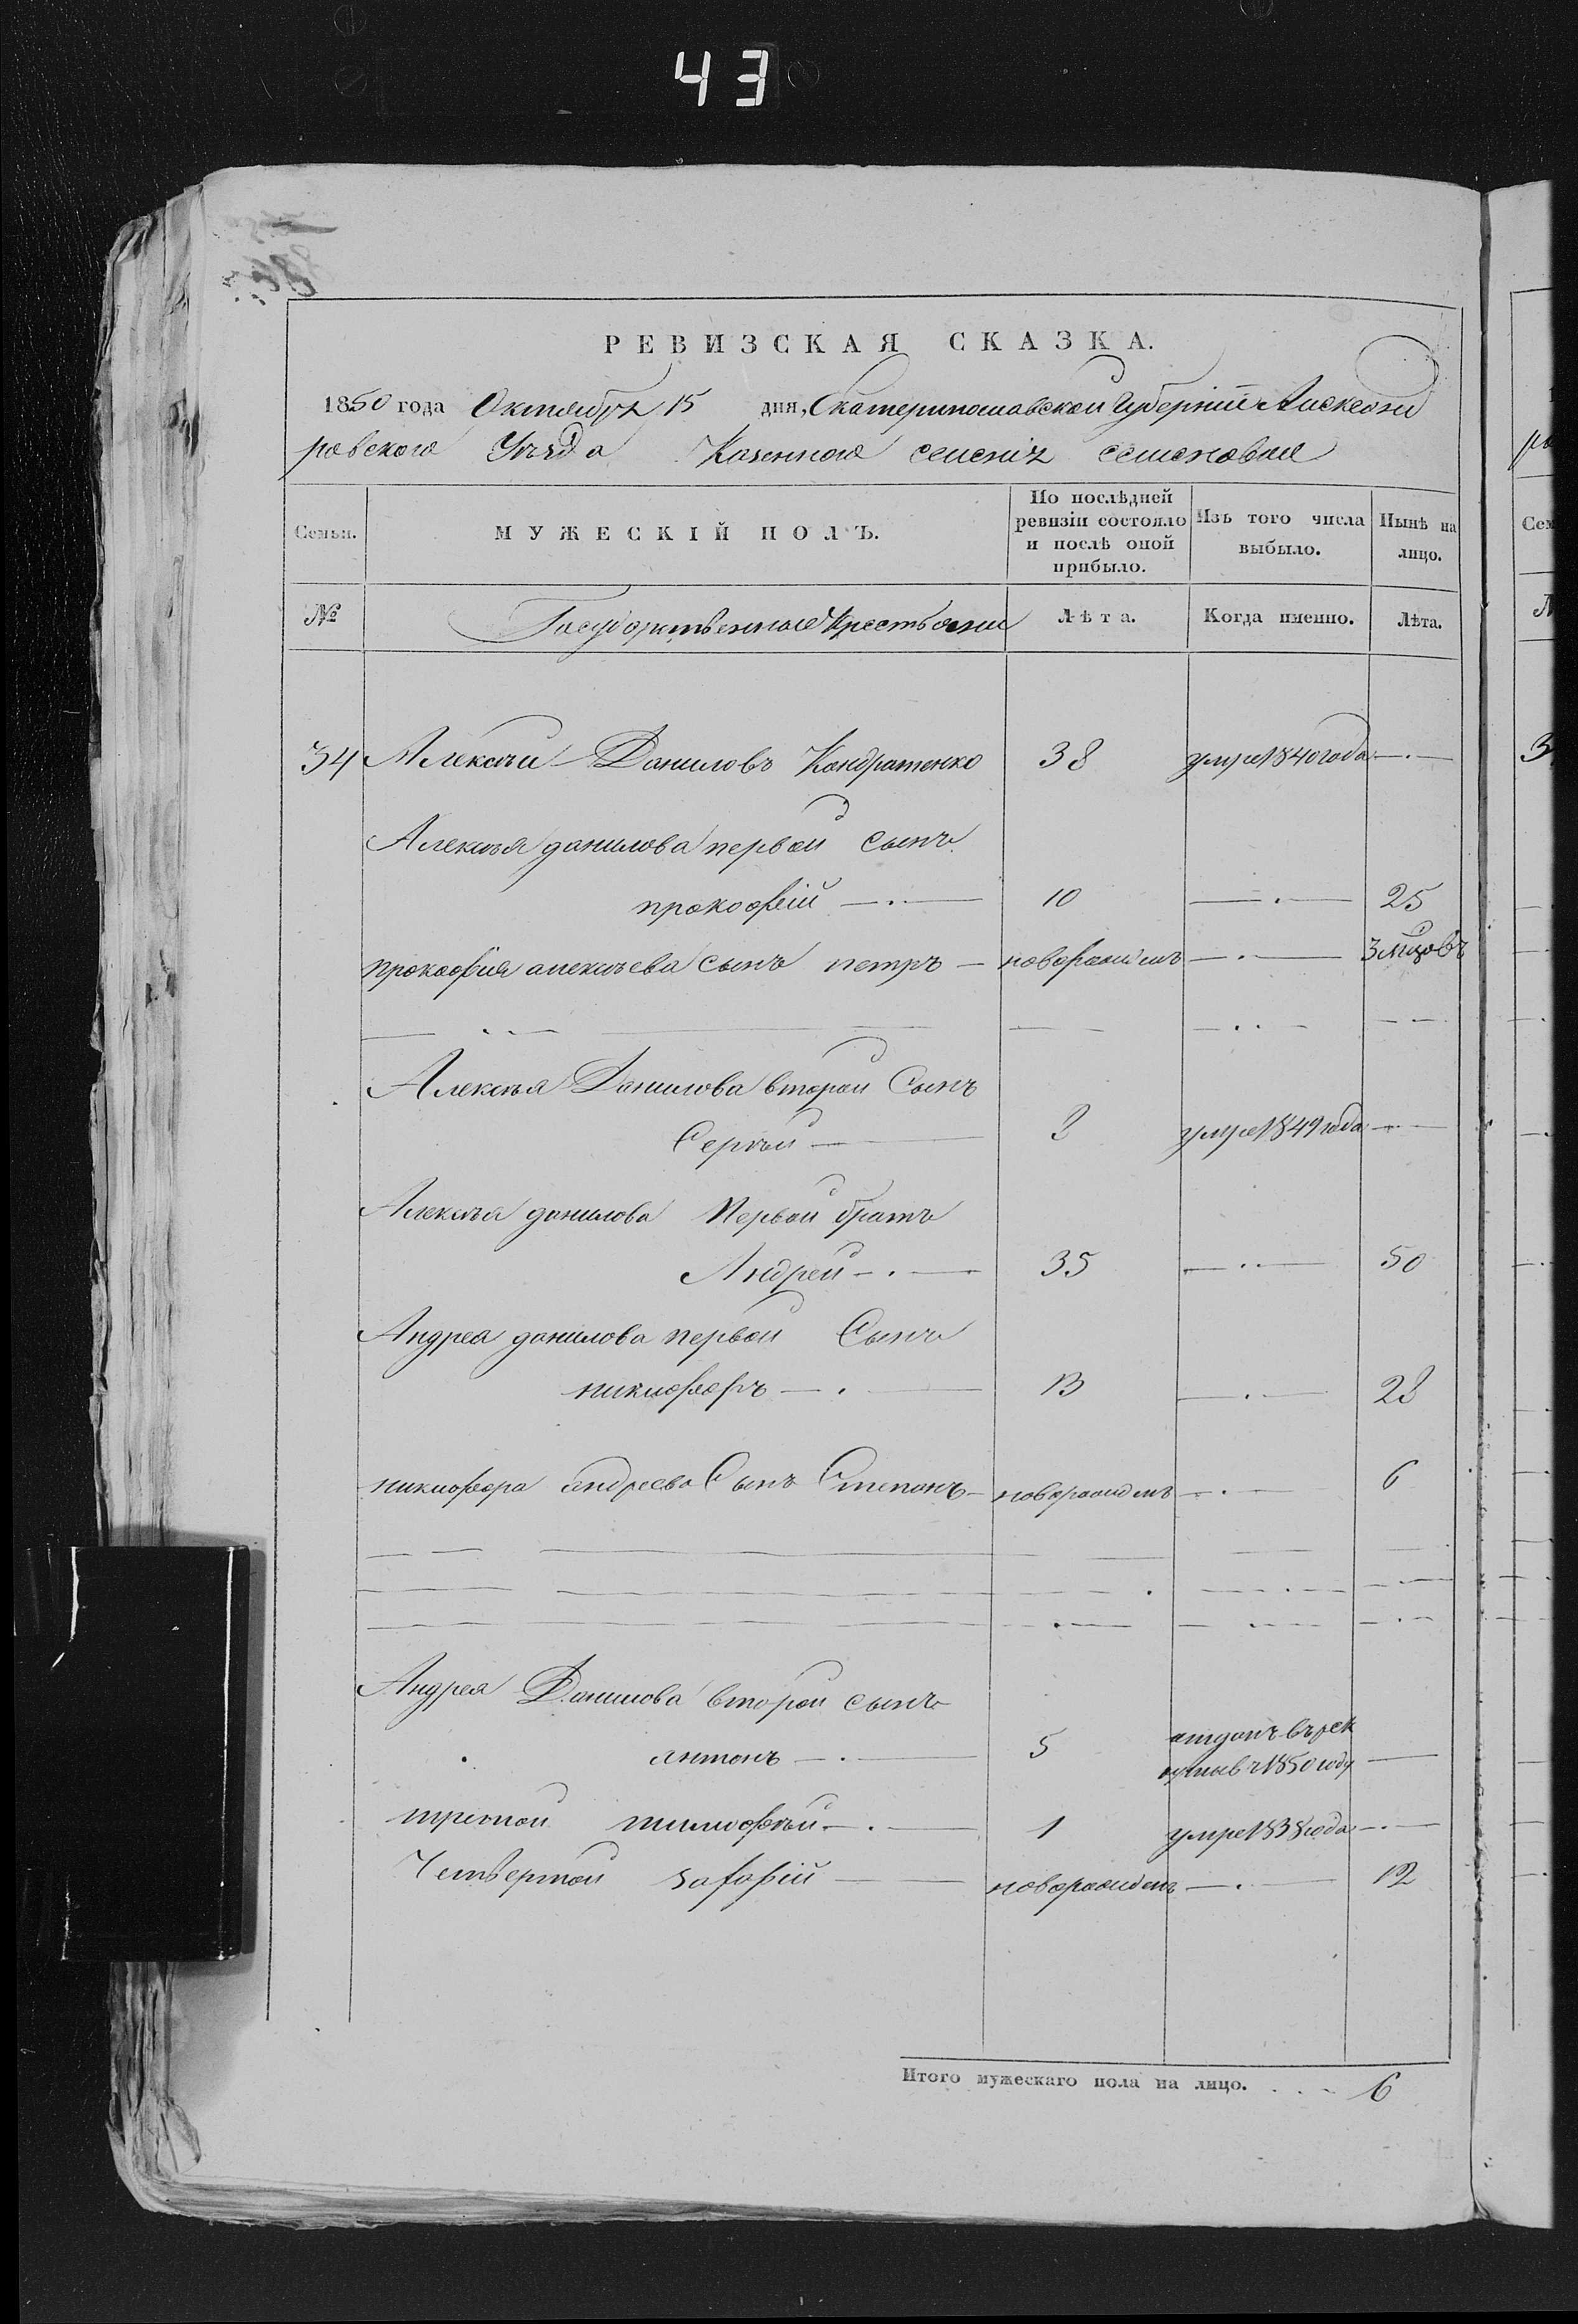 43
РЕВИЗСКАЯ СКАЗКА.
1850 года Октября 15 дня, Екатеринославской Губерніи Александ
ровского Уѣзда Казенного селенія семеновки
Семьи. МУЖЕСКІЙ ПОЛЪ. По послѣдней ревизіи состояло и послѣ оной прибыло. Изъ того числа выбыло. Нынѣ на лицо.
№ Государственные Крестьяни Лѣта. Когда именно. Лѣта.
34 Алексѣй Даниловъ Кондратенко 38 умре 1840 года
Алексѣя данилова первой сынъ
прокофій 10 25
прокофия алексѣева сынъ петръ новорожденъ 3 мцовъ
Алексѣя Данилова второй Сынъ
Сергѣй 2 умре 1849 года
Алексѣя данилова Первой братъ
Андрей 35 50
Андрея данилова первой Сынъ
никифоръ 13 28
никифора андреева Сынъ Степанъ новорожденъ 6
Андрея Данилова второй сынъ
антонъ 5 отданъ въ рек
руты въ 1850 году
третой тимофѣй 1 умре 1838 года
Четвертой захарій новорожденъ 12
Итого мужескаго пола на лицо. 6